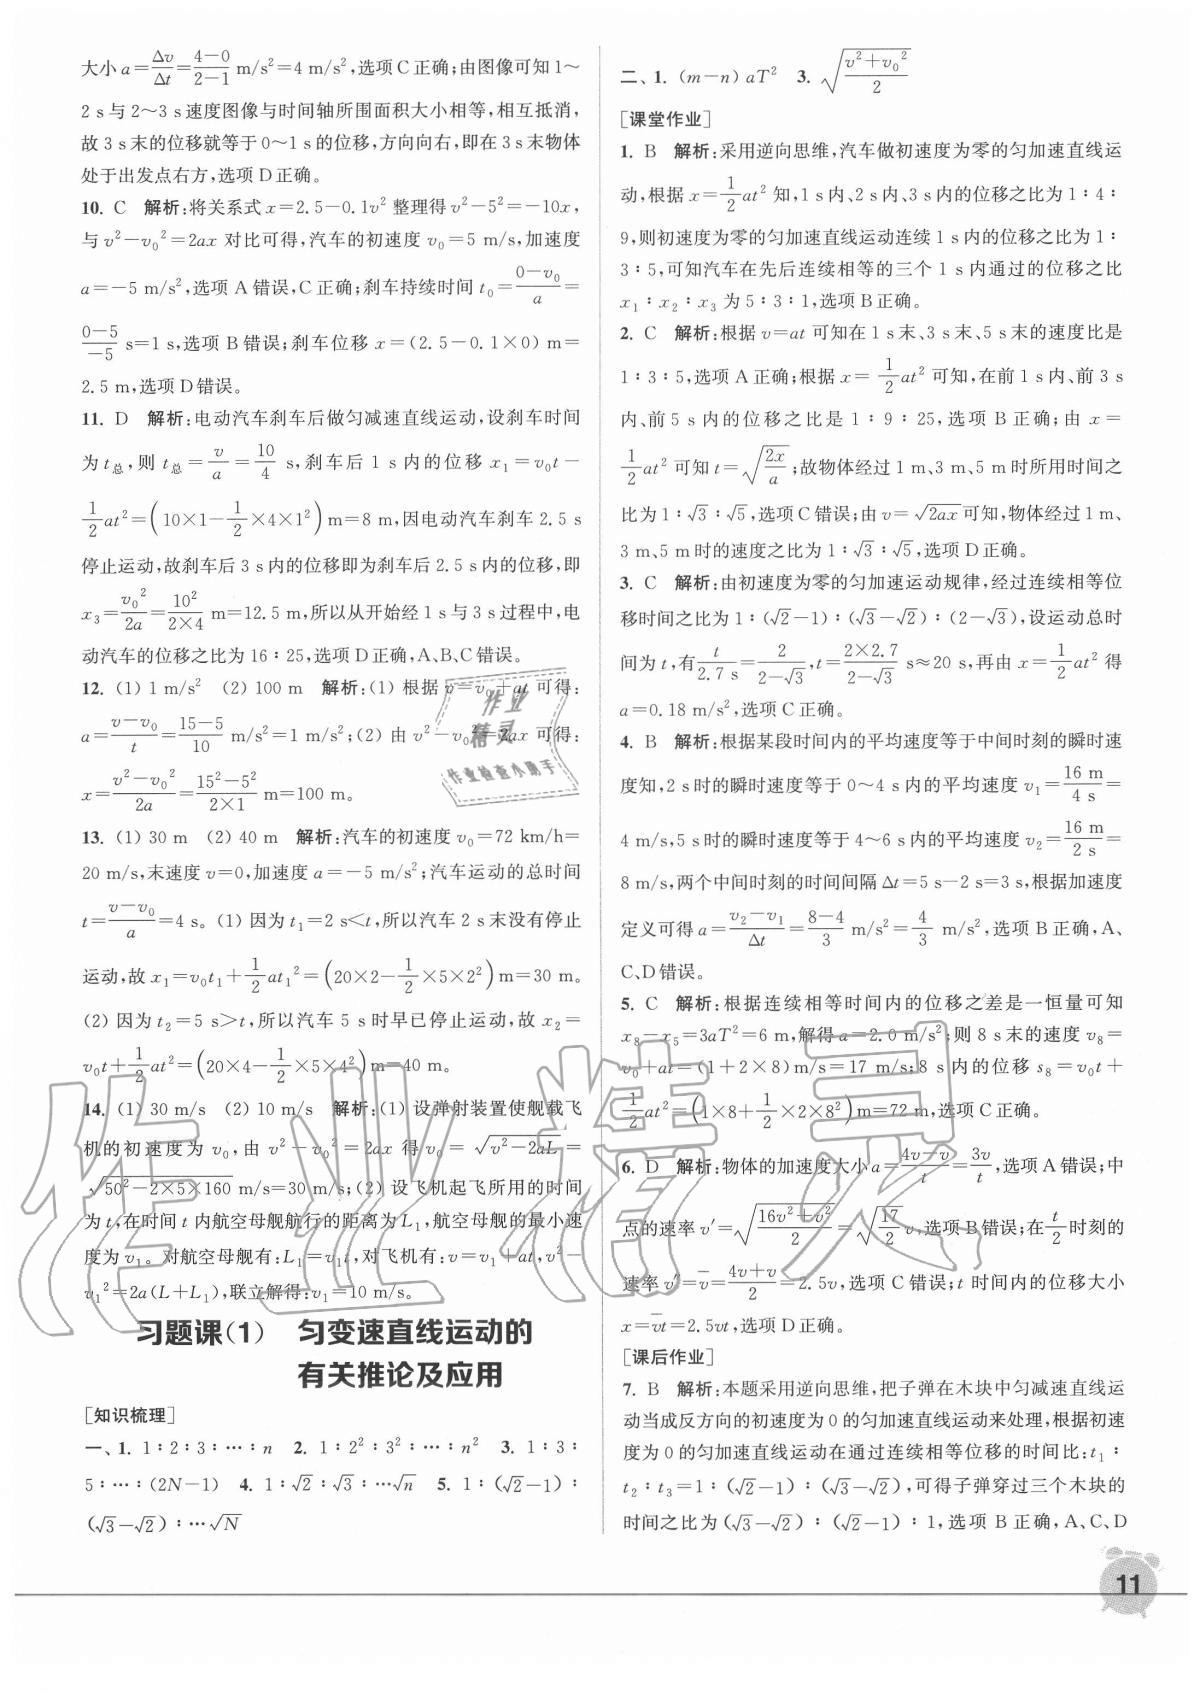 大小 a=Δv/Δt=(4-0)/(2-1) m/s²=4 m/s²,选项C正确;由图像可知1～
2 s与2～3 s速度图像与时间轴所围面积大小相等,相互抵消,
故3 s末的位移就等于0～1 s的位移,方向向右,即在3 s末物体
处于出发点右方,选项D正确。
10. C 解析:将关系式x=2.5-0.1v²整理得v²-5²=-10x,
与v²-v₀²=2ax对比可得,汽车的初速度v₀=5 m/s,加速度
a=-5 m/s²,选项A错误,C正确;刹车持续时间t₀=(0-v₀)/a=
(0-5)/(-5) s=1 s,选项B错误;刹车位移x=(2.5-0.1×0) m=
2.5 m,选项D错误。
11. D 解析:电动汽车刹车后做匀减速直线运动,设刹车时间
为t总,则t总=v/a=10/4 s,刹车后1 s内的位移x₁=v₀t-
1/2at²=(10×1-1/2×4×1²)m=8 m,因电动汽车刹车2.5 s
停止运动,故刹车后3 s内的位移即为刹车后2.5 s内的位移,即
x₃=v₀²/2a=10²/(2×4) m=12.5 m,所以从开始经1 s与3 s过程中,电
动汽车的位移之比为16∶25,选项D正确,A、B、C错误。
12. (1) 1 m/s² (2) 100 m 解析:(1) 根据v=v₀+at可得:
a=(v-v₀)/t=(15-5)/10 m/s²=1 m/s²;(2) 由v²-v₀²=2ax可得:
x=(v²-v₀²)/2a=(15²-5²)/(2×1) m=100 m。
13. (1) 30 m (2) 40 m 解析:汽车的初速度v₀=72 km/h=
20 m/s,末速度v=0,加速度a=-5 m/s²;汽车运动的总时间
t=(v-v₀)/a=4 s。(1) 因为t₁=2 s<t,所以汽车2 s末没有停止
运动,故x₁=v₀t₁+1/2at₁²=(20×2-1/2×5×2²)m=30 m。
(2) 因为t₂=5 s>t,所以汽车5 s时早已停止运动,故x₂=
v₀t+1/2at²=(20×4-1/2×5×4²)m=40 m。
14. (1) 30 m/s (2) 10 m/s 解析:(1) 设弹射装置使舰载飞
机的初速度为v₀,由v²-v₀²=2ax得v₀=√(v²-2aL)=
√(50²-2×5×160) m/s=30 m/s;(2) 设飞机起飞所用的时间
为t,在时间t内航空母舰航行的距离为L₁,航空母舰的最小速
度为v₁。对航空母舰有:L₁=v₁t,对飞机有:v=v₁+at,v²-
v₁²=2a(L+L₁),联立解得:v₁=10 m/s。
习题课(1) 匀变速直线运动的
有关推论及应用
[知识梳理]
一、1. 1∶2∶3∶…∶n 2. 1∶2²∶3²∶…∶n² 3. 1∶3∶
5∶…∶(2N-1) 4. 1∶√2∶√3∶…√n 5. 1∶(√2-1)∶
(√3-√2)∶…√N
二、1. (m-n) aT² 3. √((v²+v₀²)/2)
[课堂作业]
1. B 解析:采用逆向思维,汽车做初速度为零的匀加速直线运
动,根据x=1/2at²知,1 s内、2 s内、3 s内的位移之比为1∶4∶
9,则初速度为零的匀加速直线运动连续1 s内的位移之比为1∶
3∶5,可知汽车在先后连续相等的三个1 s内通过的位移之比
x₁∶x₂∶x₃为5∶3∶1,选项B正确。
2. C 解析:根据v=at可知在1 s末、3 s末、5 s末的速度比是
1∶3∶5,选项A正确;根据x=1/2at²可知,在前1 s内、前3 s
内、前5 s内的位移之比是1∶9∶25,选项B正确;由x=
1/2at²可知t=√(2x/a);故物体经过1 m、3 m、5 m时所用时间之
比为1∶√3∶√5,选项C错误;由v=√(2ax)可知,物体经过1 m、
3 m、5 m时的速度之比为1∶√3∶√5,选项D正确。
3. C 解析:由初速度为零的匀加速运动规律,经过连续相等位
移时间之比为1∶(√2-1)∶(√3-√2)∶(2-√3),设运动总时
间为t,有t/2.7 s=2/(2-√3),t=(2×2.7)/(2-√3) s≈20 s,再由x=1/2at²得
a=0.18 m/s²,选项C正确。
4. B 解析:根据某段时间内的平均速度等于中间时刻的瞬时速
度知,2 s时的瞬时速度等于0～4 s内的平均速度v₁=16 m/4 s=
4 m/s,5 s时的瞬时速度等于4～6 s内的平均速度v₂=16 m/2 s=
8 m/s,两个中间时刻的时间间隔Δt=5 s-2 s=3 s,根据加速度
定义可得a=(v₂-v₁)/Δt=(8-4)/3 m/s²=4/3 m/s²,选项B正确,A、
C、D错误。
5. C 解析:根据连续相等时间内的位移之差是一恒量可知
x₈-x₅=3aT²=6 m,解得a=2.0 m/s²;则8 s末的速度v₈=
v₀+at=(1+2×8)m/s=17 m/s;8 s内的位移s₈=v₀t+
1/2at²=(1×8+1/2×2×8²)m=72 m,选项C正确。
6. D 解析:物体的加速度大小a=(4v-v)/t=3v/t,选项A错误;中
点的速率v′=√((16v²+v²)/2)=√(17/2)v,选项B错误;在t/2时刻的
速率v″=v̄=(4v+v)/2=2.5v,选项C错误;t时间内的位移大小
x=v̄t=2.5vt,选项D正确。
[课后作业]
7. B 解析:本题采用逆向思维,把子弹在木块中匀减速直线运
动当成反方向的初速度为0的匀加速直线运动来处理,根据初速
度为0的匀加速直线运动在通过连续相等位移的时间比:t₁∶
t₂∶t₃=1∶(√2-1)∶(√3-√2),可得子弹穿过三个木块的
时间之比为(√3-√2)∶(√2-1)∶1,选项B正确,A、C、D
11
作业
精灵
作业检查小助手
作业精灵